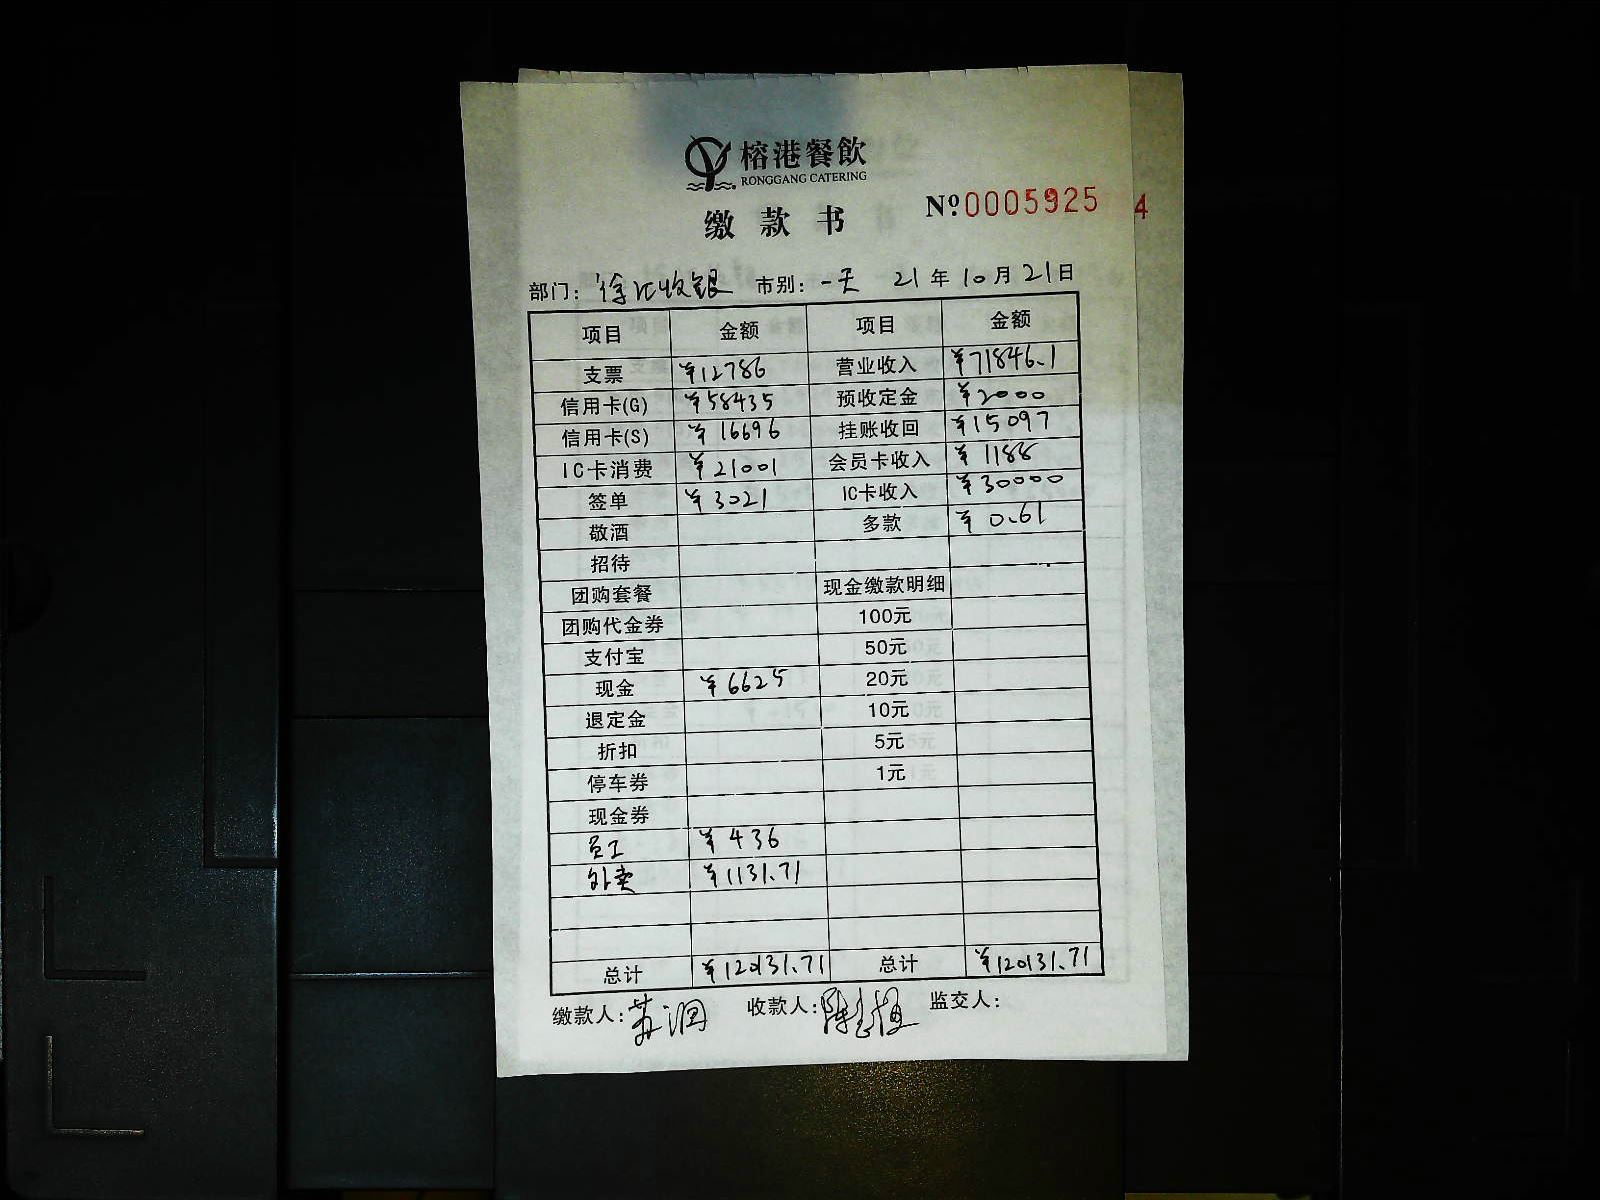 榕港餐飲
RONGGANG CATERING
缴款书
№0005925 4
部门: 徐汇收银 市别: 一天 21年10月21日
项目 金额 项目 金额
支票 ¥12786 营业收入 ¥71846.1
信用卡(G) ¥58435 预收定金 ¥2000
信用卡(S) ¥16696 挂账收回 ¥15097
IC卡消费 ¥21001 会员卡收入 ¥1188
签单 ¥3021 IC卡收入 ¥30000
敬酒 多款 ¥0.61
招待
团购套餐 现金缴款明细
团购代金券 100元
支付宝 50元
现金 ¥6625 20元
退定金 10元
折扣 5元
停车券 1元
现金券
员工 ¥436
外卖 ¥1131.71
总计 ¥120131.71 总计 ¥120131.71
缴款人: 收款人: 监交人: